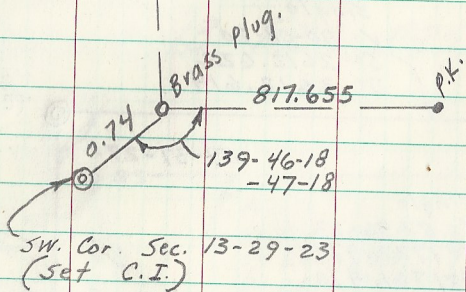 Brass plug.
P.K.
817.655
0.74
139-46-18
-47-18
SW. Cor. Sec. 13-29-23
(Set C.I.)